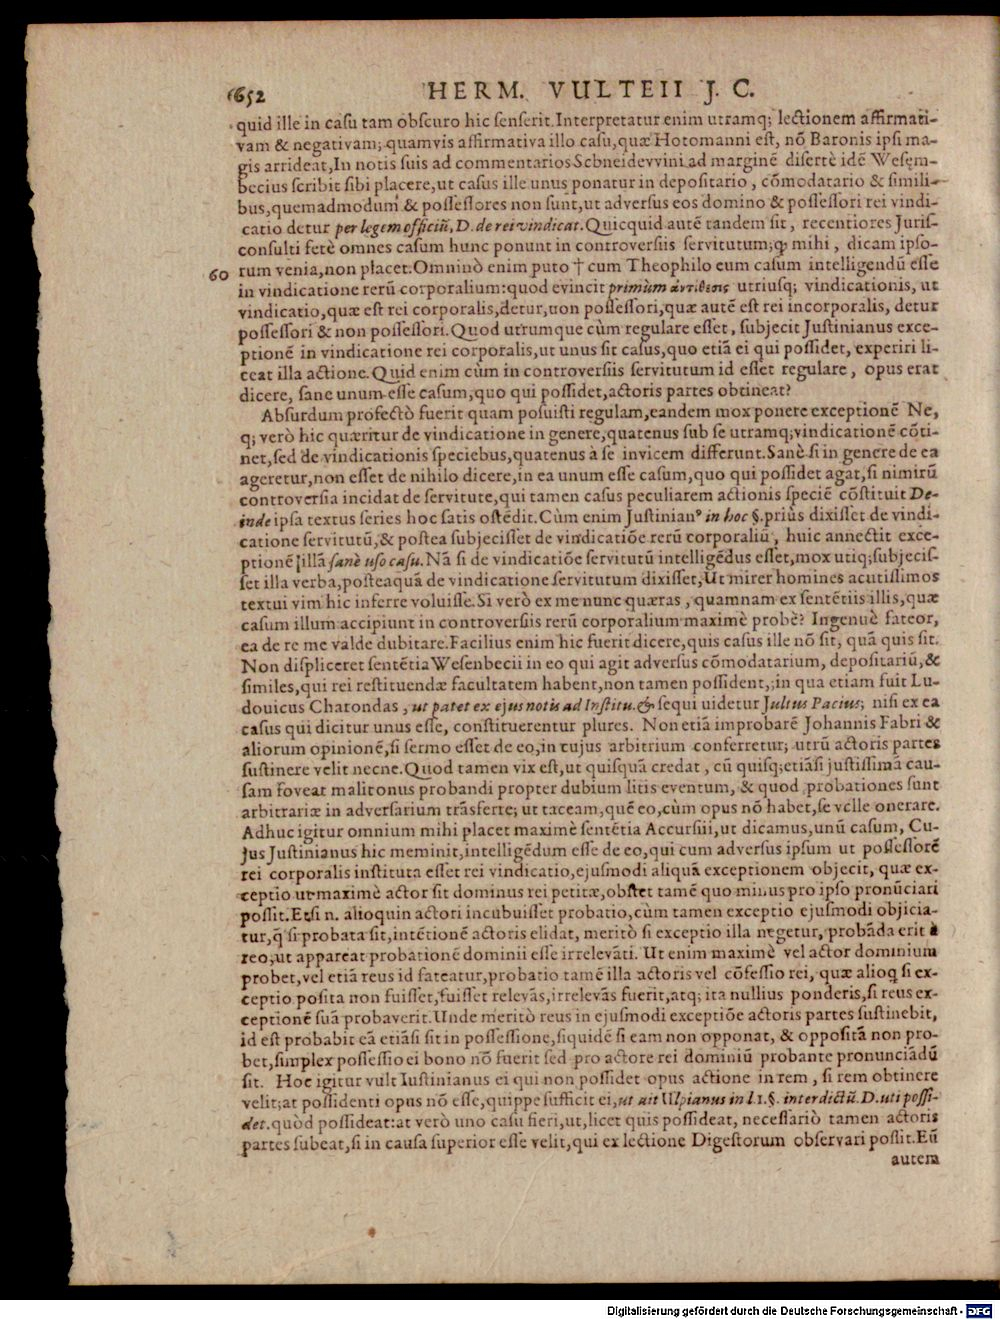 652 HERM. VULTEII J. C.
quid ille in casu tam obscuro hic senserit. Interpretatur enim utramq; lectionem affirmati-
vam & negativam; quamvis affirmativa illo casu, quæ Hotomanni est, nō Baronis ipsi ma-
gis arrideat, In notis suis ad commentarios Schneidevvini ad marginē disertè idē Wesem-
becius scribit sibi placere, ut casus ille unus ponatur in depositario, cōmodatario & simili-
bus, quemadmodum & possessores non sunt, ut adversus eos domino & possessori rei vindi-
catio detur per legem officiū, D. de rei vindicat. Quicquid autē tandem sit, recentiores Juris-
consulti ferè omnes casum hunc ponunt in controversiis servitutum; q̃ mihi, dicam ipso-
60 rum venia, non placet. Omninò enim puto † cum Theophilo eum casum intelligendū esse
in vindicatione rerū corporalium: quod evincit primùm ἀντίθεσις utriusq; vindicationis, ut
vindicatio, quæ est rei corporalis, detur, non possessori, quæ autē est rei incorporalis, detur
possessori & non possessori. Quod utrumque cùm regulare esset, subjecit Justinianus exce-
ptionē in vindicatione rei corporalis, ut unus sit casus, quo etiā ei qui possidet, experiri li-
ceat illa actione. Quid enim cùm in controversiis servitutum id esset regulare, opus erat
dicere, sane unum esse casum, quo qui possidet, actoris partes obtineat?
Absurdum profectò fuerit quam posuisti regulam, eandem mox ponere exceptionē Ne,
q; verò hic quæritur de vindicatione in genere, quatenus sub se utramq; vindicationē cōti-
net, sed de vindicationis speciebus, quatenus a se invicem differunt. Sanè si in genere de ea
ageretur, non esset de nihilo dicere, in ea unum esse casum, quo qui possidet agat, si nimirū
controversia incidat de servitute, qui tamen casus peculiarem actionis speciē cōstituit De-
inde ipsa textus series hoc satis ostēdit. Cùm enim Justinianꝰ in hoc §. priùs dixisset de vindi-
catione servitutū, & postea subjecisset de vindicatiōe rerū corporaliū, huic annectit exce-
ptionē illā sanè uso casu. Nā si de vindicatiōe servitutū intelligēdus esset, mox utiq; subjecis-
set illa verba, posteaquā de vindicatione servitutum dixisset, Ut mirer homines acutissimos
textui vim hic inferre voluisse. Si verò ex me nunc quæras, quamnam ex sentētiis illis, quæ
casum illum accipiunt in controversiis rerū corporalium maximè probē? Ingenuè fateor,
ea de re me valde dubitare. Facilius enim hic fuerit dicere, quis casus ille nō sit, quā quis sit.
Non displiceret sentētia Wesenbecii in eo qui agit adversus cōmodatarium, depositariū, &
similes, qui rei restituendæ facultatem habent, non tamen possident,; in qua etiam fuit Lu-
dovicus Charondas, ut patet ex ejus notis ad Institu. & sequi uidetur Julius Pacius; nisi ex ea
casus qui dicitur unus esse, constituerentur plures. Non etiā improbarē Johannis Fabri &
aliorum opinionē, si sermo esset de eo, in cujus arbitrium conferretur; utrū actoris partes
sustinere velit necne. Quod tamen vix est, ut quisquā credat, cū quisq; etiāsi justissimā cau-
sam foveat malit onus probandi propter dubium litis eventum, & quod probationes sunt
arbitrariæ in adversarium trāsferre; ut taceam, quē eo, cùm opus nō habet, se velle onerare.
Adhuc igitur omnium mihi placet maximè sentētia Accursii, ut dicamus, unū casum, Cu-
jus Justinianus hic meminit, intelligēdum esse de eo, qui cum adversus ipsum ut possessorē
rei corporalis instituta esset rei vindicatio, ejusmodi aliquā exceptionem objecit, quæ ex-
ceptio ut maximè actor sit dominus rei petitæ, obstet tamē quo minus pro ipso pronūciari
possit. Etsi n. alioquin actori incubuisset probatio, cùm tamen exceptio ejusmodi objicia-
tur, q̃ si probata sit, intētionē actoris elidat, meritò si exceptio illa negetur, probāda erit à
reo, ut appareat probationē dominii esse irrelevāti. Ut enim maximè vel actor dominium
probet, vel etiā reus id fateatur, probatio tamē illa actoris vel cōfessio rei, quæ alioq si ex-
ceptio posita non fuisset, fuisset relevās, irrelevās fuerit, atq; ita nullius ponderis, si reus ex-
ceptionē suā probaverit. Unde meritò reus in ejusmodi exceptiōe actoris partes sustinebit,
id est probabit eā etiāsi sit in possessione, siquidē si eam non opponat, & oppositā non pro-
bet, simplex possessio ei bono nō fuerit sed pro actore rei dominiū probante pronunciādū
sit. Hoc igitur vult Iustinianus ei qui non possidet opus actione in rem, si rem obtinere
velit; at possidenti opus nō esse, quippe sufficit ei, ut ait Ulpianus in l 1. §. interdictū. D. uti possi-
det. quòd possideat: at verò uno casu fieri, ut, licet quis possideat, necessariò tamen actoris
partes subeat, si in causa superior esse velit, qui ex lectione Digestorum observari possit. Eū
autem
Digitalisierung gefördert durch die Deutsche Forschungsgemeinschaft - DFG